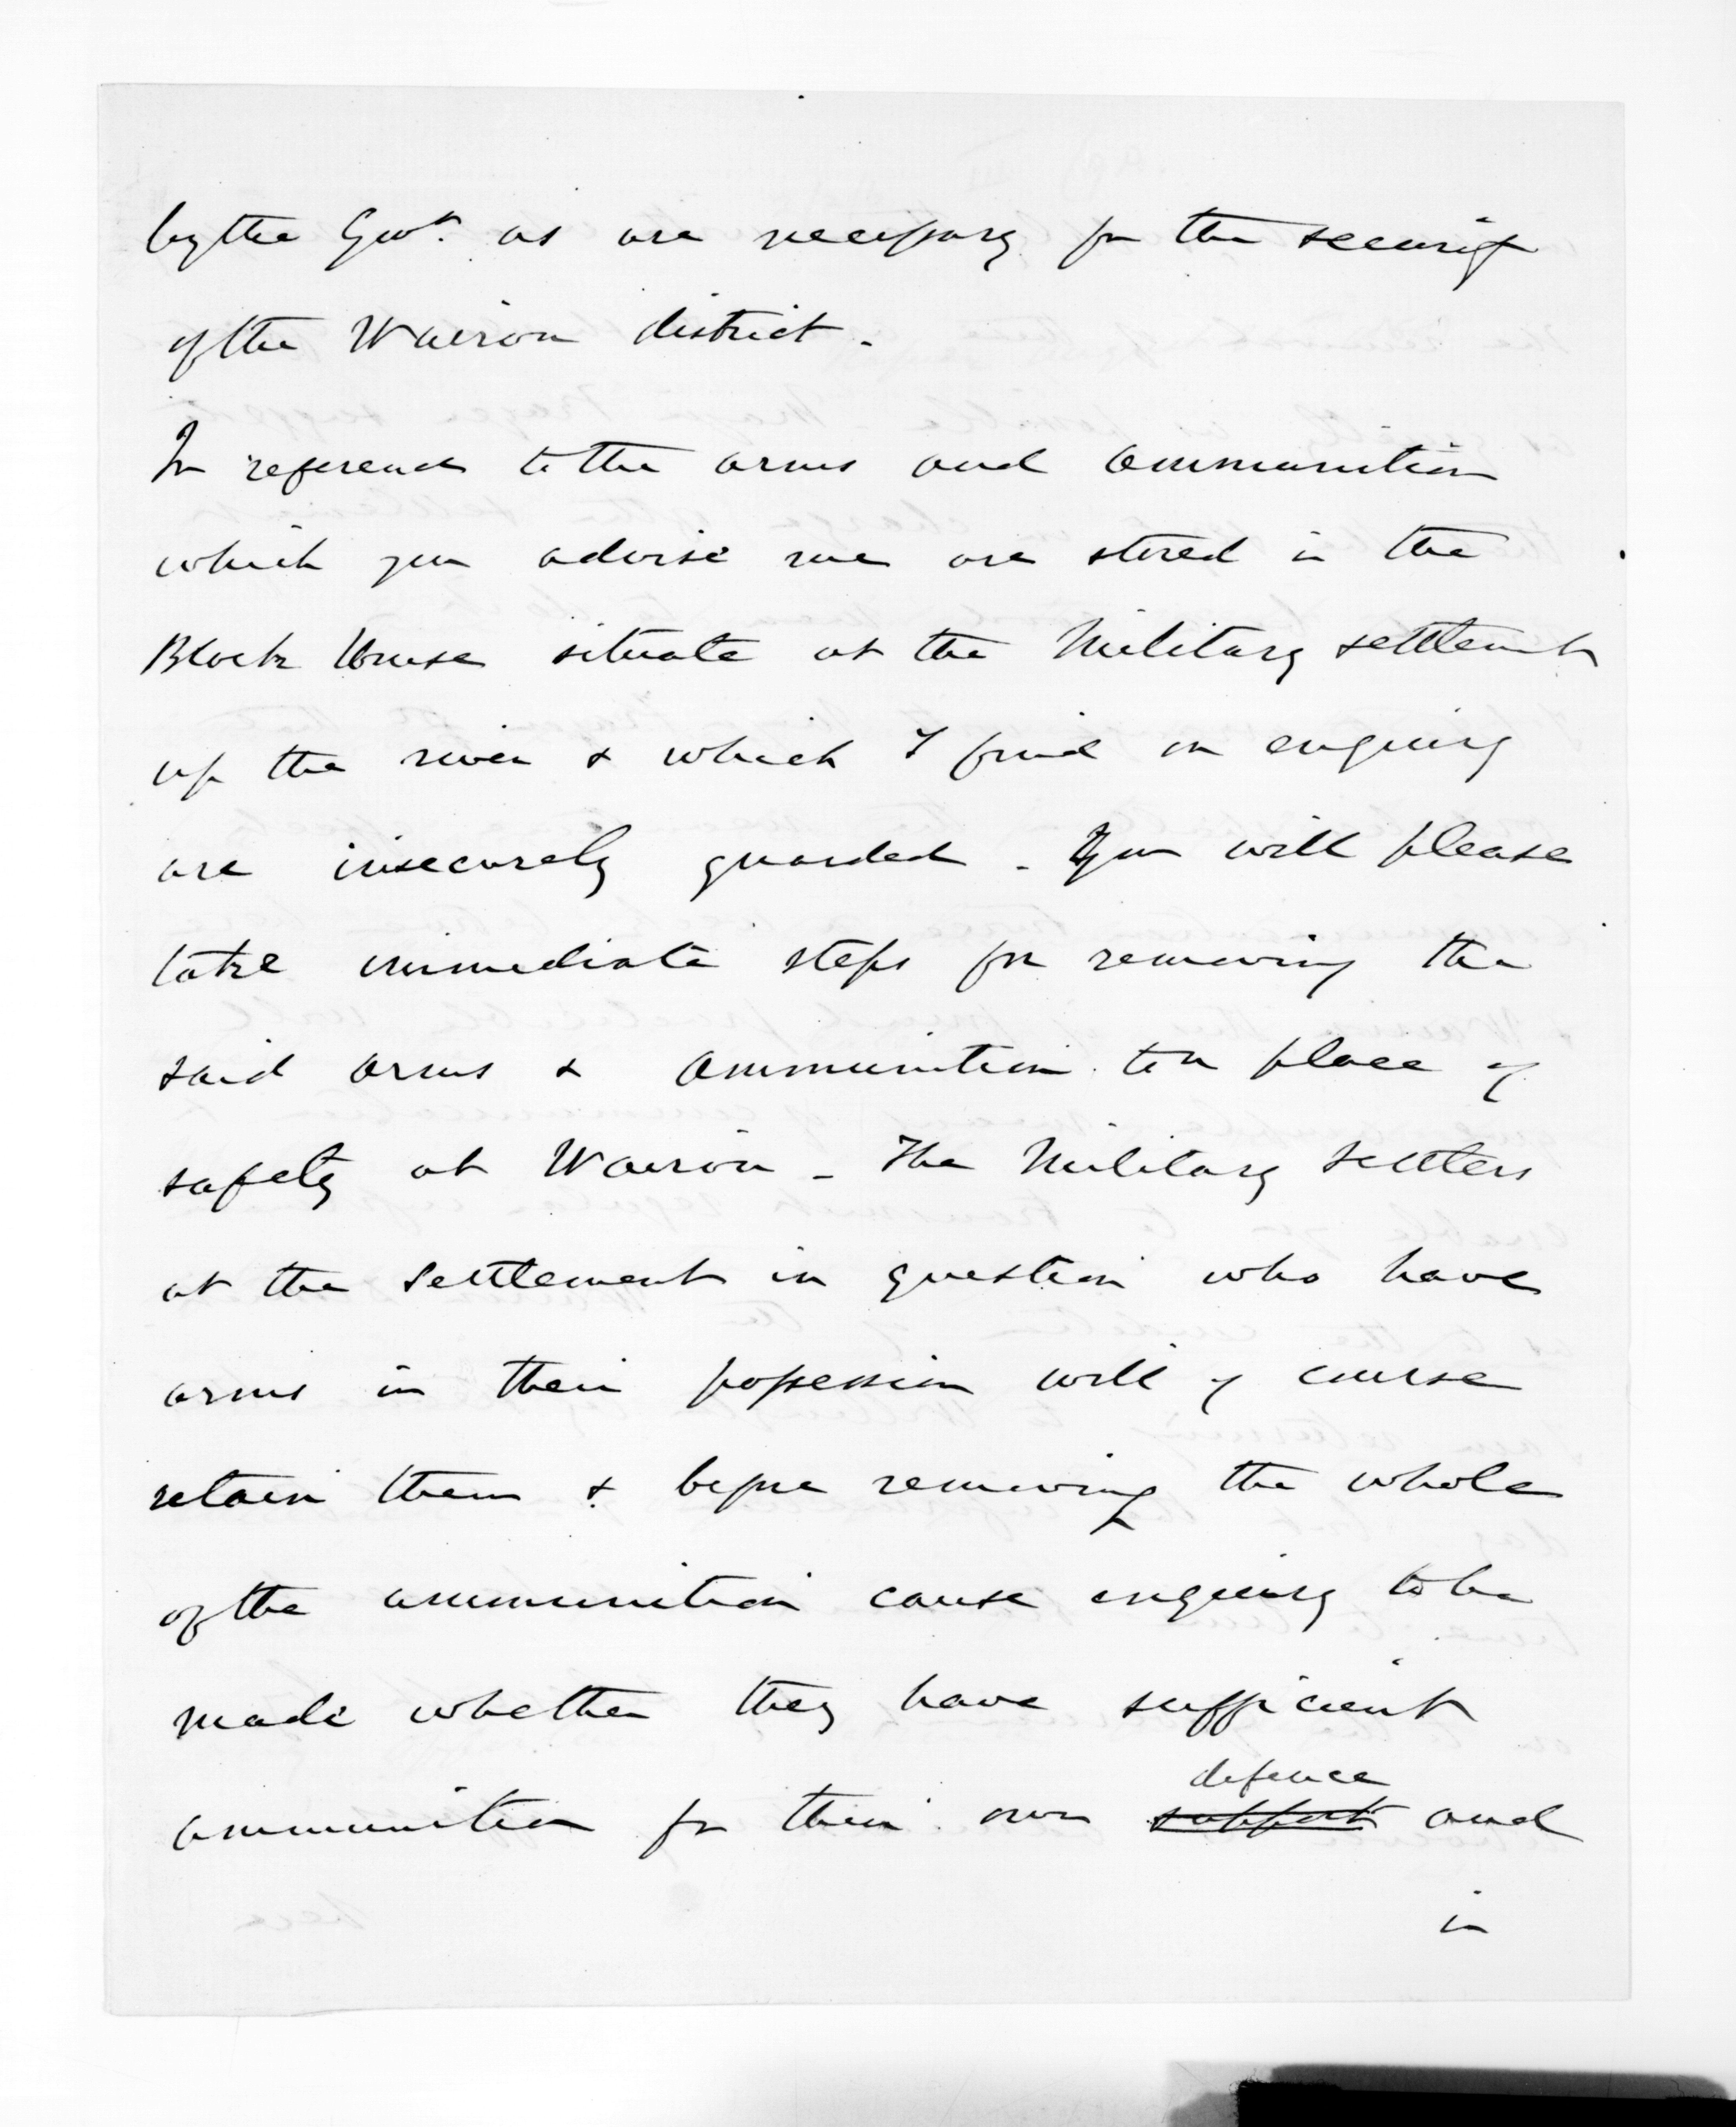 by the Govt. as are necessary for the security
of the Wairoa district.
In reference to the arms and ammunition
which you advise me are stored in the
Block House situate at the Military settlement
up the river & which I find on enquiry
are insecurely guarded. You will please
take immediate steps for removing the
said arms & ammunition to a place of
safety at Wairoa - The Military Settlers
at the Settlement in question who have
arms in their possession will of course
retain them & before removing the whole
of the ammunition cause enquiry to be
made whether they have sufficient
defence
ammunition for their own support and
in